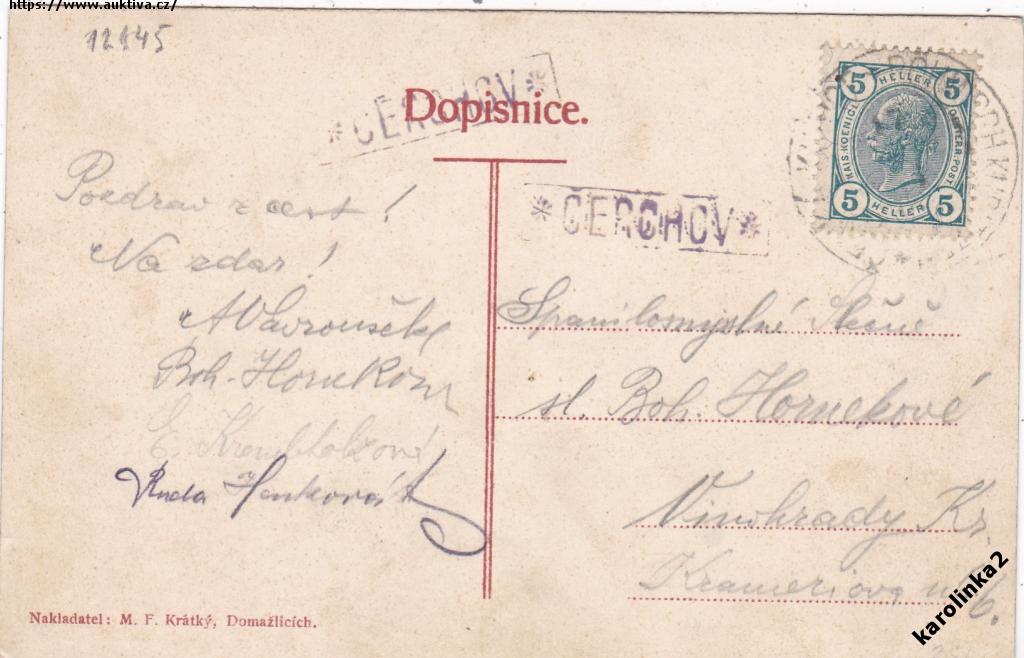 https://www.auktiva.cz/
12145
* ČERCHOV *
Dopisnice.
5 HELLER 5
KAIS. KOENIGL. OESTERR. POST
5 HELLER 5
* ČERCHOV *
Pozdrav z cest!
Na zdar!
Boh. Hornekom
Ruda
Spanilomyslné Slečně
sl. Boh. Hornekové
Vinohrady Kr.
Krameriova ul. 6.
Nakladatel: M. F. Krátký, Domažlicích.
karolinka2